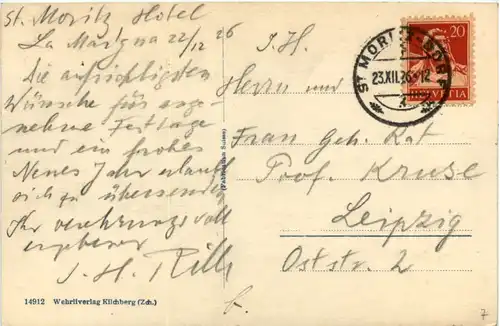 St. Moritz Hotel
La Margna 22/12 26
Die aufrichtigsten
Wünsche für ange-
nehme Festtage
und ein frohes
Neues Jahr erlaubt
sich zu übersenden
Ihr verehrungsvoll
ergebener
J. H.
14912 Wehrliverlag Kilchberg (Zch.)
J. H.
Herrn und
Frau Geh. Rat
Prof. Kruse
Leipzig
Oststr. 2
20
HELVETIA
ST MORITZ-DORF
23.XII.26-12
7